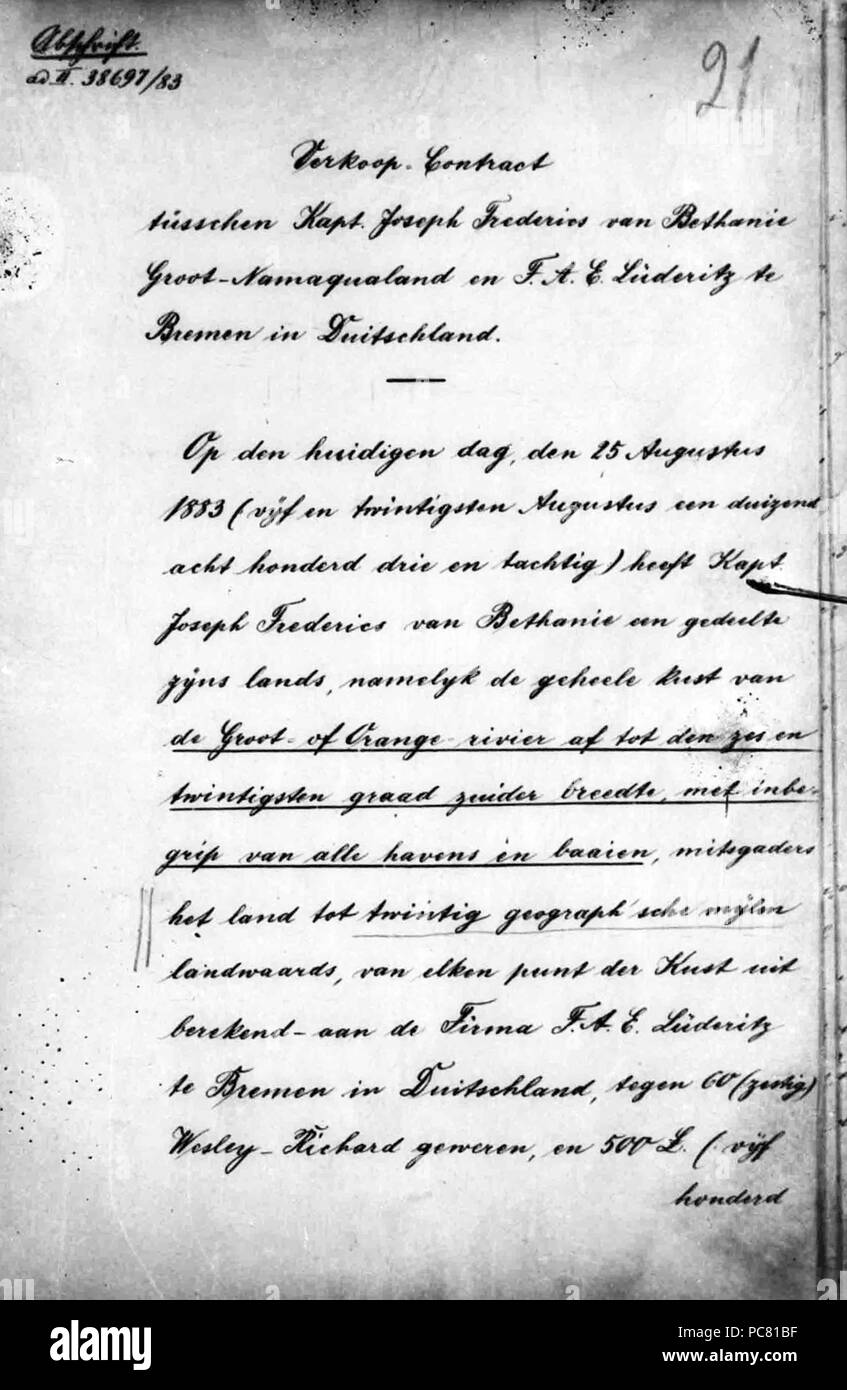 Abschrift.
ad II. 38697/83
21
Verkoop-Contract
tüsschen Kapt. Joseph Frederics van Bethanie
Groot-Namaqualand en F. A. E. Lüderitz te
Bremen in Duitschland.
Op den huidigen dag, den 25 Augustus
1883 (vÿf en twintigsten Augustus een duizend
acht honderd drie en tachtig) heeft Kapt.
Joseph Frederics van Bethanie een gedeelte
zÿns lands, namelÿk de geheele kust van
de Groot- of Orange-rivier af tot den zes en
twintigsten graad zuider breedte, met inbe-
grip van alle havens en baaien, mitsgaders
het land tot twintig geograph'sche mÿlen
landwaards, van elken punt der Kust uit
berekend - aan de Firma F. A. E. Lüderitz
te Bremen in Duitschland, tegen 60 (zestig)
Wesley-Richard geweren, en 500 £. (: vÿf
honderd
alamy
Image ID: PC81BF
www.alamy.com